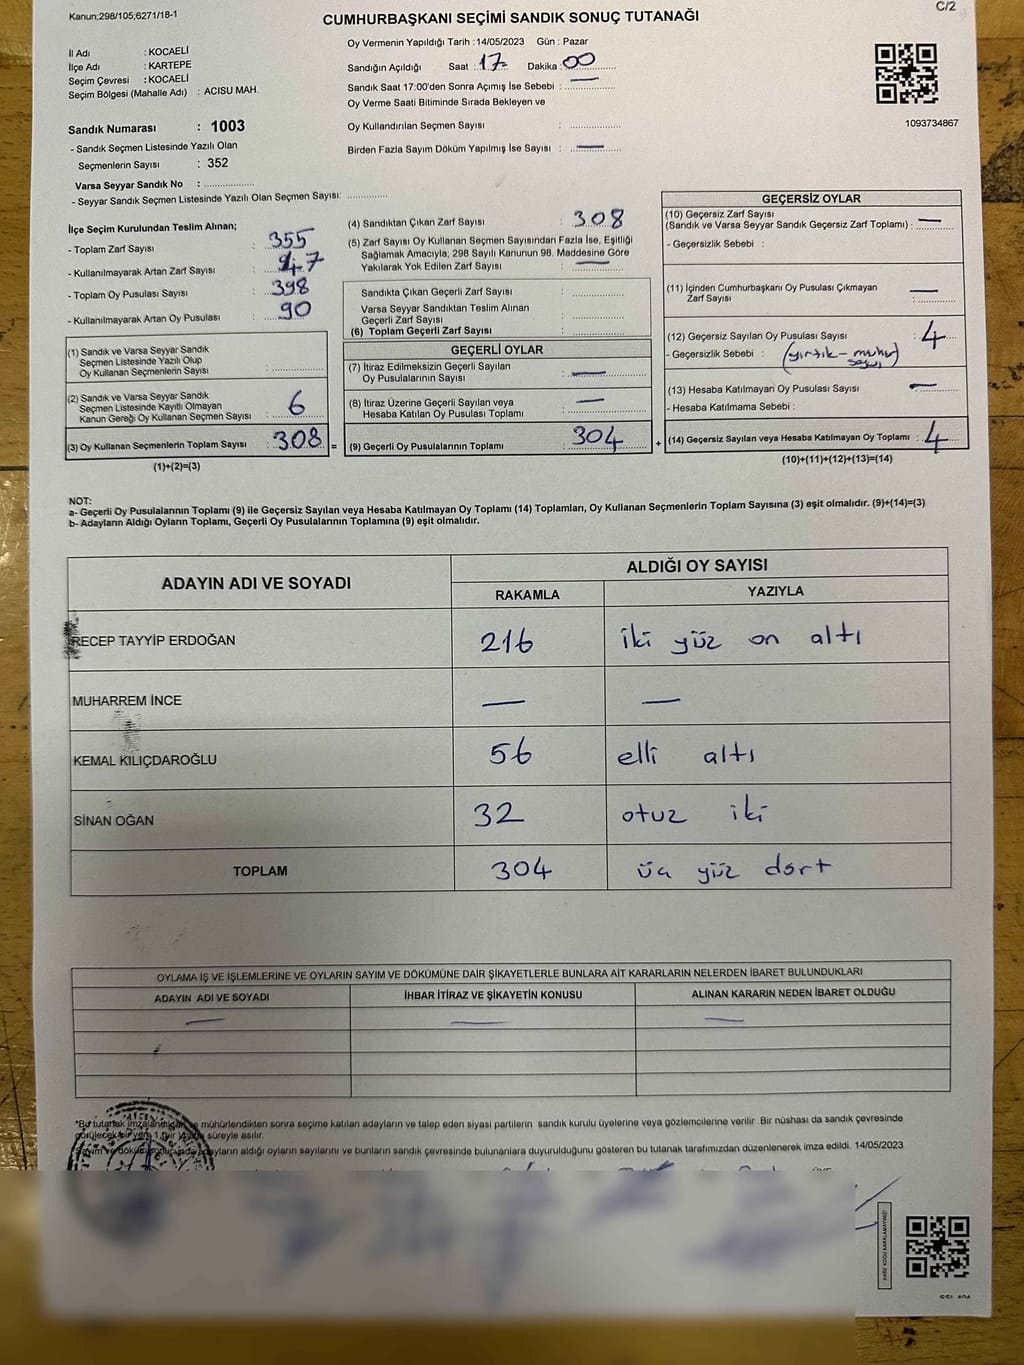 Kanun;298/105;6271/18-1
C/2
CUMHURBAŞKANI SEÇİMİ SANDIK SONUÇ TUTANAĞI
İl Adı : KOCAELİ
İlçe Adı : KARTEPE
Seçim Çevresi : KOCAELİ
Seçim Bölgesi (Mahalle Adı) : ACISU MAH.
Sandık Numarası : 1003
- Sandık Seçmen Listesinde Yazılı Olan
Seçmenlerin Sayısı : 352
Varsa Seyyar Sandık No : ..................
- Seyyar Sandık Seçmen Listesinde Yazılı Olan Seçmen Sayısı: ..............
Oy Vermenin Yapıldığı Tarih : 14/05/2023 Gün : Pazar
Sandığın Açıldığı Saat : 17 Dakika : 00
Sandık Saat 17:00'den Sonra Açımış İse Sebebi : —
Oy Verme Saati Bitiminde Sırada Bekleyen ve
Oy Kullandırılan Seçmen Sayısı : ..................
Birden Fazla Sayım Döküm Yapılmış İse Sayısı : —
1093734867
İlçe Seçim Kurulundan Teslim Alınan;
- Toplam Zarf Sayısı : 355
- Kullanılmayarak Artan Zarf Sayısı : 47
- Toplam Oy Pusulası Sayısı : 398
- Kullanılmayarak Artan Oy Pusulası : 90
(1) Sandık ve Varsa Seyyar Sandık
Seçmen Listesinde Yazılı Olup
Oy Kullanan Seçmenlerin Sayısı : ..................
(2) Sandık ve Varsa Seyyar Sandık
Seçmen Listesinde Kayıtlı Olmayan
Kanun Gereği Oy Kullanan Seçmen Sayısı : 6
(3) Oy Kullanan Seçmenlerin Toplam Sayısı : 308 =
(1)+(2)=(3)
(4) Sandıktan Çıkan Zarf Sayısı : 308
(5) Zarf Sayısı Oy Kullanan Seçmen Sayısından Fazla İse, Eşitliği
Sağlamak Amacıyla; 298 Sayılı Kanunun 98. Maddesine Göre
Yakılarak Yok Edilen Zarf Sayısı : —
Sandıkta Çıkan Geçerli Zarf Sayısı : ..................
Varsa Seyyar Sandıktan Teslim Alınan
Geçerli Zarf Sayısı : ..................
(6) Toplam Geçerli Zarf Sayısı : ..................
GEÇERLİ OYLAR
(7) İtiraz Edilmeksizin Geçerli Sayılan
Oy Pusulalarının Sayısı : —
(8) İtiraz Üzerine Geçerli Sayılan veya
Hesaba Katılan Oy Pusulası Toplamı : —
(9) Geçerli Oy Pusulalarının Toplamı : 304 +
GEÇERSİZ OYLAR
(10) Geçersiz Zarf Sayısı
(Sandık ve Varsa Seyyar Sandık Geçersiz Zarf Toplamı) : —
- Geçersizlik Sebebi :
(11) İçinden Cumhurbaşkanı Oy Pusulası Çıkmayan
Zarf Sayısı : —
(12) Geçersiz Sayılan Oy Pusulası Sayısı : 4
- Geçersizlik Sebebi : (yırtık - muhur
(13) Hesaba Katılmayan Oy Pusulası Sayısı : —
- Hesaba Katılmama Sebebi :
(14) Geçersiz Sayılan veya Hesaba Katılmayan Oy Toplamı : 4
(10)+(11)+(12)+(13)=(14)
NOT:
a- Geçerli Oy Pusulalarının Toplamı (9) ile Geçersiz Sayılan veya Hesaba Katılmayan Oy Toplamı (14) Toplamları, Oy Kullanan Seçmenlerin Toplam Sayısına (3) eşit olmalıdır. (9)+(14)=(3)
b- Adayların Aldığı Oyların Toplamı, Geçerli Oy Pusulalarının Toplamına (9) eşit olmalıdır.
ADAYIN ADI VE SOYADI
ALDIĞI OY SAYISI
RAKAMLA YAZIYLA
RECEP TAYYİP ERDOĞAN 216 iki yüz on altı
MUHARREM İNCE — —
KEMAL KILIÇDAROĞLU 56 elli altı
SİNAN OĞAN 32 otuz iki
TOPLAM 304 üç yüz dört
OYLAMA İŞ VE İŞLEMLERİNE VE OYLARIN SAYIM VE DÖKÜMÜNE DAİR ŞİKAYETLERLE BUNLARA AİT KARARLARIN NELERDEN İBARET BULUNDUKLARI
ADAYIN ADI VE SOYADI İHBAR İTİRAZ VE ŞİKAYETİN KONUSU ALINAN KARARIN NEDEN İBARET OLDUĞU
— — —
*Bu tutanak imzalanmadan ve mühürlendikten sonra seçime katılan adayların ve talep eden siyasi partilerin sandık kurulu üyelerine veya gözlemcilerine verilir. Bir nüshası da sandık çevresinde
görülecek bir yere 1 hafta süreyle asılır.
adayların aldığı oyların sayılarını ve bunların sandık çevresinde bulunanlara duyurulduğunu gösteren bu tutanak tarafımızdan düzenlenerek imza edildi. 14/05/2023
KARE KODU KARALAMAYINIZ!